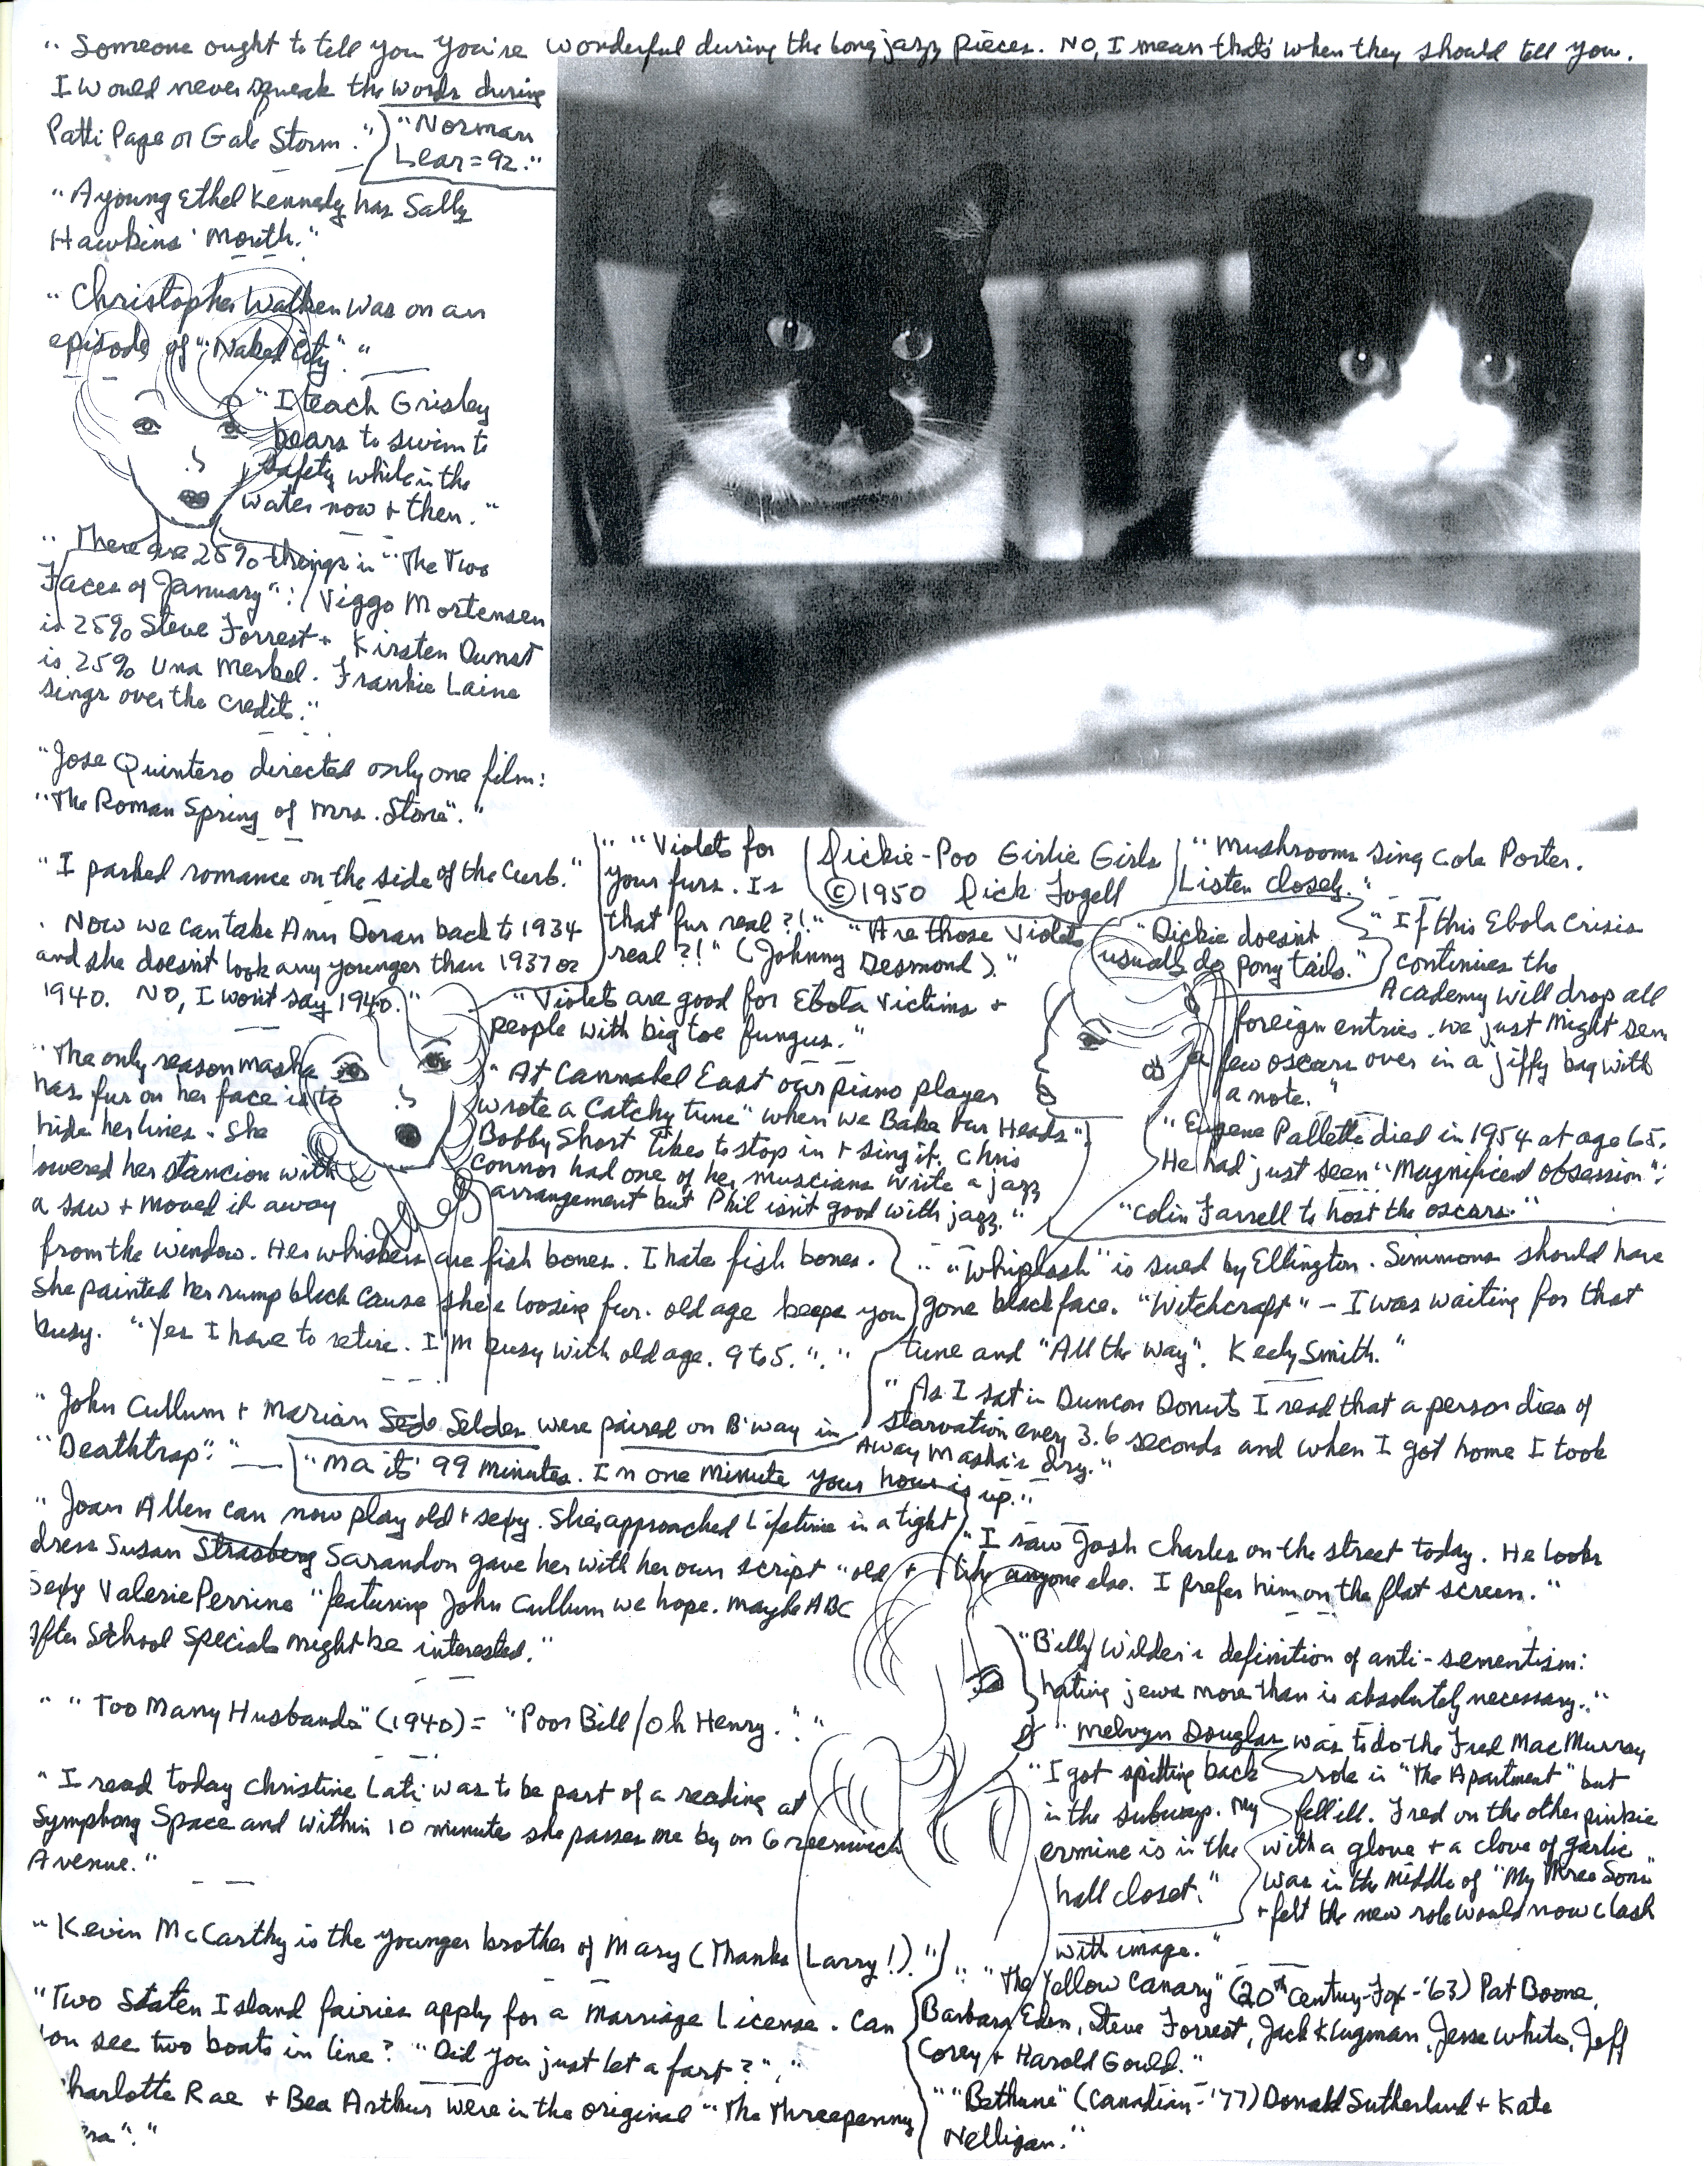 "Someone ought to tell you you're wonderful during the long jazz pieces. No, I mean that's when they should tell you.
I would never speak the words during
Patti Page or Gale Storm."
"Norman
Lear = 92."
"A young Ethel Kennedy has Sally
Hawkins' mouth."
"Christopher Walken was on an
episode of "Naked City"."
"I teach Grisley
bears to swim to
safety while in the
water now + then."
"There are 25% things in "The Two
Faces of January": Viggo Mortensen
is 25% Steve Forrest + Kirsten Dunst
is 25% Una Merkel. Frankie Laine
sings over the credits."
"Jose Quintero directed only one film:
"The Roman Spring of Mrs. Stone"."
"I parked romance on the side of the curb."
Now we can take Ann Doran back to 1934
and she doesn't look any younger than 1937 or
1940. No, I won't say 1940."
""Violets for
your furs. Is
that fur real?!"
real?!" (Johnny Desmond)."
"Are those Violets
Dickie-Poo Girlie Girls
©1950 Dick Fogell
"Mushrooms sing Cole Porter.
Listen closely."
"Dickie doesn't
usually do pony tails."
"If this Ebola Crisis
continues the
Academy will drop all
foreign entries. We just might send
a few oscars over in a jiffy bag with
a note."
"Violets are good for Ebola victims +
people with big toe fungus."
"At Cannabel East our piano player
wrote a catchy tune "when we Bake our Heads".
Bobby Short likes to stop in + sing it. Chris
Connor had one of her muscians write a jazz
arrangement but Phil isn't good with jazz."
"Eugene Pallette died in 1954 at age 65.
He had just seen "Magnificed obsession".
"Colin Farrell to host the oscars."
"The only reason Masha
has fur on her face is to
hide her lines. She
lowered her stancion with
a saw + moved it away
from the window. Her whiskers are fish bones. I hate fish bones.
She painted her rump black cause she's loosing fur. old age keeps you
busy. "Yes I have to retire. I'm busy with old age. 9 to 5."."
""Whiplash" is sued by Ellington. Simmons should have
gone blackface. "Witchcraft" - I was waiting for that
tune and "All the Way". Keely Smith."
"John Cullum + Marian Selder were paired on B'way in
"Deathtrap"."
"Ma it's 99 minutes. In one minute your hour is up."
"As I sat in Duncan Donuts I read that a person dies of
starvation every 3.6 seconds and when I got home I took
away Masha's dry."
"Joan Allen can now play old + sexy. She approached Lifetime in a tight
dress Susan Strasberg Sarandon gave her with her own script "old +
Sexy Valerie Perrine" featuring John Cullum we hope. Maybe ABC
After School Specials might be interested."
"I saw Josh Charles on the street today. He looks
like anyone else. I prefer him on the flat screen."
""Too Many Husbands" (1940) = "Poor Bill/Oh Henry.""
"Billy Wilder's definition of anti-sementism:
hating jews more than is absolutely necessary."
"Melvyn Douglas was to do the Fred MacMurray
role in "The Apartment" but
fell ill. Fred on the other pinkie
with a glove + a clove of garlic
was in the middle of "My Three Sons"
+ felt the new role would now clash
with image."
"I got spitting back
in the subway. My
ermine is in the
hall closet."
"I read today Christine Lati was to be part of a reading at
Symphony Space and within 10 minutes she passes me by on Greenwich
Avenue."
"Kevin McCarthy is the younger brother of Mary (Thanks Larry!)."
"Two Staten Island fairies apply for a Marriage License. Can
you see two boats in line? "Did you just let a fart?"."
Charlotte Rae + Bea Arthur were in the original "The Threepenny
""The Yellow Canary" (20th Century-Fox-'63) Pat Boone,
Barbara Eden, Steve Forrest, Jack Klugman, Jesse White, Jeff
Corey + Harold Gould."
""Bethune" (Canadian-'77) Donald Sutherland + Kate
Nelligan."